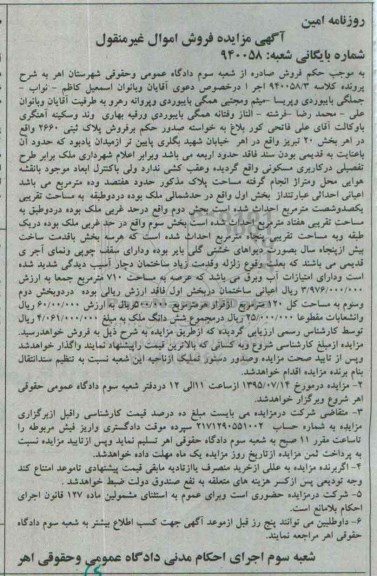 روزنامه امین
آگهی مزایده فروش اموال غیرمنقول
شماره بایگانی شعبه: ۹۴۰۰۵۸
به موجب حکم فروش صادره از شعبه سوم دادگاه عمومی وحقوقی شهرستان اهر به شرح
پرونده کلاسه ۹۴۰۰۵۸/۳ اجر ا درخصوص دعوی آقایان وبانوان اسمعیل کاظم - نواب -
جملگی بابیوردی وپریسا -میثم ومجتبی همگی بابیوردی وپروانه رهرو به طرفیت آقایان وبانوان
علی - محمد رضا -فرشته - الناز وفتانه همگی بابیوردی ورقیه بهاری وند وسکینه آهنگری
باوکالت آقای علی فاتحی کور بلاغ به خواسته صدور حکم برفروش پلاک ثبتی ۲۶۶۰ واقع
در اهر بخش ۲۰ تبریز واقع در اهر خیابان شهید بگلری پایین تر ازمیدان یادبود که حدود آن
باعنایت به قدیمی بودن سند فاقد حدود اربعه می باشد وبرابر اعلام شهرداری ملک برابر طرح
تفصیلی درکاربری مسکونی واقع گردیده وعقب کشی ندارد ولی باکنترل ابعاد موجود بانقشه
هوایی محل ومتراژ انجام گرفته مساحت پلاک مذکور حدود هفتصد وده مترمربع می باشد
اعیانی احداثی عبارتنداز بخش اول واقع در حدشمالی ملک بوده دردوطبقه به مساحت تقریبی
یکصدوشصت مترمربع احداث شده است بخش دوم واقع درحد غربی ملک بوده دردوطبق به
مساحت تقریبی هفتاد مترمربع احداث شده است بخش سوم واقع در حد غربی ملک بوده دریک
طبقه وبه مساحت تقریبی پنجاه مترمربع احداث شده است که هرسه بخش باقدمت ساخت
بیش ازپنجاه سال بصورت دیوارهای خشتی گلی باپر بوده ودارای سقف چوبی ونمای آجر ی
قدیمی می باشند که بعلت وقوع زلزله وقدمت زیاد ساختمان دچار آسیب دیدگی شدید شده
است ودارای امتیازات آب وبرق می باشد که عرصه به مساحت ۷۱۰ مترمربع جمعا به ارزش
۳/۹۷۶/۰۰۰/۰۰۰ ریال اعیانی ساختمان دربخش اول فاقد ارزش ریالی بوده دردوبخش دوم
وسوم به مساحت کل ۱۲۰ مترمربع ازقرار هرمترمربع ۵۰۰/۰۰۰ریال به ارزش ۶۰/۰۰۰/۰۰۰ ریال
وانشعابات مقطوعا ۲۵/۰۰۰/۰۰۰ ریال درمجموع شش دانگ ملک به مبلغ ۴/۰۶۱/۰۰۰/۰۰۰ ریال
توسط کارشناس رسمی ارزیابی گردیده که ازطریق مزایده به شرح ذیل به فروش خواهدرسید.
مزایده ازمبلغ کارشناسی شروع وبه کسانی که بالاترین قیمت راپیشنهاد نمایند واگذار خواهدشد
وپس از تایید صحت مزایده وصدور دستور تملیک ازناحیه این شعبه نسبت به تنظیم سندانتقال
بنام برنده مزایده اقدام خواهدشد.
۲- مزایده درمورخ ۱۳۹۵/۰۷/۱۴ ازساعت ۱۱الی ۱۲ دردفتر شعبه سوم دادگاه عمومی حقوقی
اهر شروع وبرگزار خواهدشد.
۳- متقاضی شرکت درمزایده می بایست مبلغ ده درصد قیمت کارشناسی راقبل ازبرگزاری
مزایده به شماره حساب ۲۱۷۱۲۹۰۵۵۱۰۰۲ سپرده موقت دادگستری واریز فیش مربوطه را
تاساعت مقرر ۱۱ صبح به شعبه سوم دادگاه حقوقی اهر تسلیم نماید وپس ازتایید مزایده نسبت
به پرداخت ثمن مزایده ازتاریخ روز مزایده یک ماه مهلت داده خواهدشد.
۴- اگربرنده مزایده به عللی ازخرید منصرف یاازتادیه مابقی قیمت پیشنهادی تاموعد امتناع کند
وجه تودیعی پس ازکسر هزینه های متعلقه به نفع صندوق دولت ضبط خواهدشد .
۵- شرکت درمزایده حضوری است وبرای عموم به استثنای مشمولین ماده ۱۲۷ قانون اجرای
احکام بلامانع است.
۶- داوطلبین می توانند پنج رز قبل ازموعد آگهی جهت کسب اطلاع بیشتر به شعبه سوم دادگاه
حقوقی اهر مراجعه نمایند.
شعبه سوم اجرای احکام مدنی دادگاه عمومی وحقوقی اهر